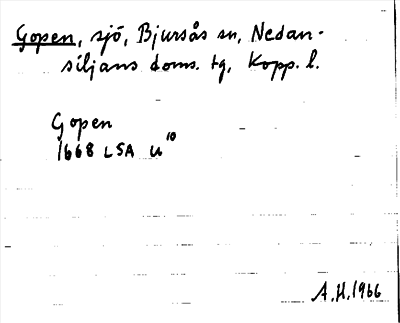 Gopen, sjö, Bjursås sn, Nedan-
siljans doms. tg, Kopp. l.
Gopen
1668 LSA U¹⁰
A.H. 1966